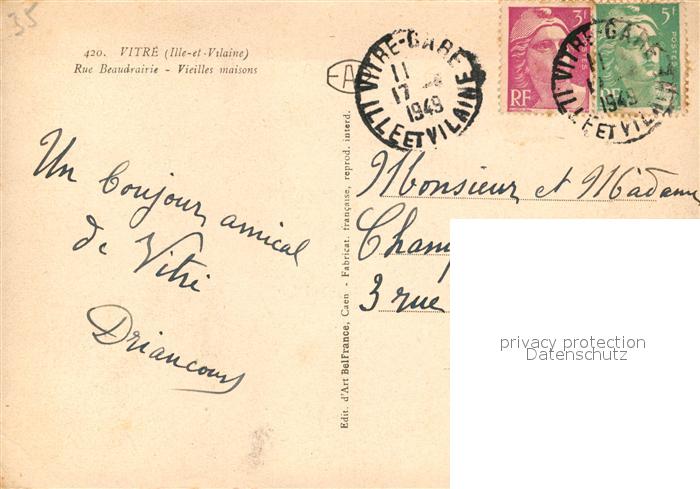 35
420. VITRÉ (Ille-et-Vilaine)
Rue Beaudrairie - Vieilles maisons
VITRE-GARE
11
17
1949
ILLE ET VILAINE
3F
POSTES
RF
5F
POSTES
RF
VITRE-GARE
11
1949
ILLE ET VILAINE
Un bonjour amical
de Vitré
Driancourt
Edit. d'Art BelFrance, Caen - Fabricat. française, reprod. interd.
Monsieur et Madame
Champ
3 rue
privacy protection
Datenschutz